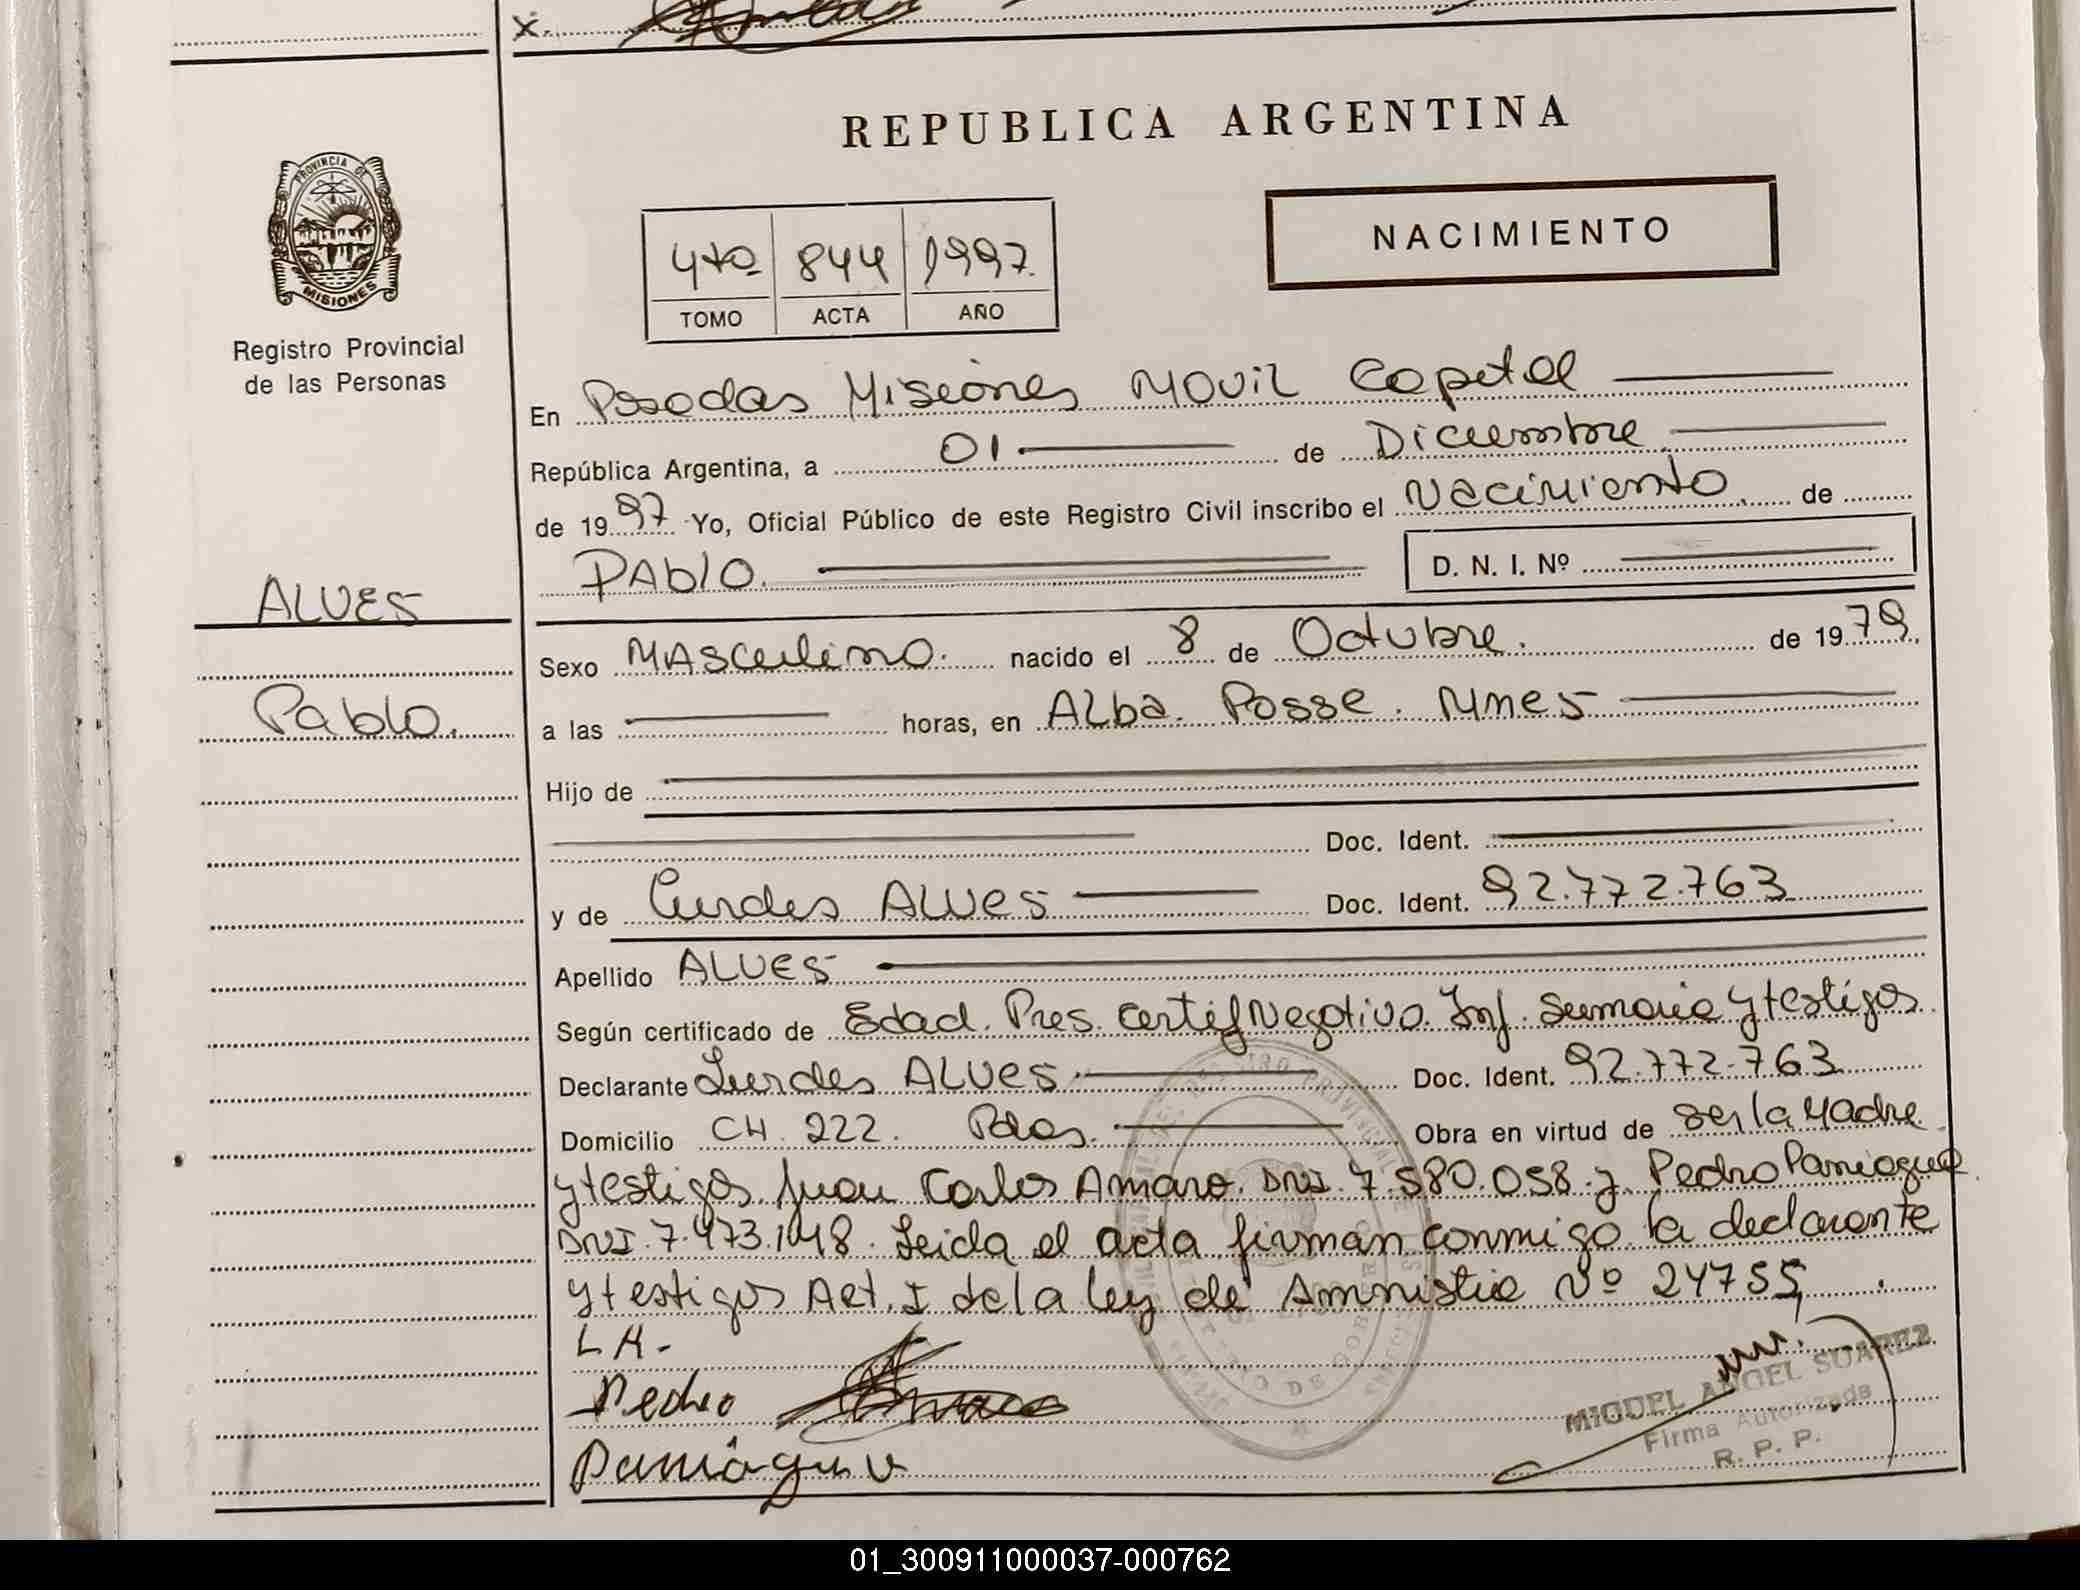 X.
REPUBLICA ARGENTINA
PROVINCIA DE
MISIONES
Registro Provincial
de las Personas
4to 844 1997
TOMO ACTA AÑO
NACIMIENTO
En Posadas Misiones MOVIL Capital
República Argentina, a 01 de Diciembre
de 1997 Yo, Oficial Público de este Registro Civil inscribo el Nacimiento. de
PAblO. D. N. I. Nº
ALVES
Sexo MAsculino. nacido el 8 de Octubre. de 1979
Pablo.
a las horas, en ALba. Posse. Mnes
Hijo de
Doc. Ident.
y de Lurdes ALVes Doc. Ident. 92.772.763
Apellido ALVES
Según certificado de Edad. Pres. Certif Negativo. Inf. Sumaria y testigos
Declarante Lurdes ALVes Doc. Ident. 92.772.763
Domicilio CH. 222. Pdas. Obra en virtud de ser la Madre
y testigos Juan Carlos Amaro. DNI. 7.580.058. y Pedro Paniagua
DNI. 7.473.148. Leida el acta firman conmigo la declarante
y testigos Art. I de la ley de Amnistia Nº 24755
LA.
Pedro
Paniagua
MIGUEL ANGEL SUAREZ
Firma Autorizada
R. P. P.
01_300911000037-000762